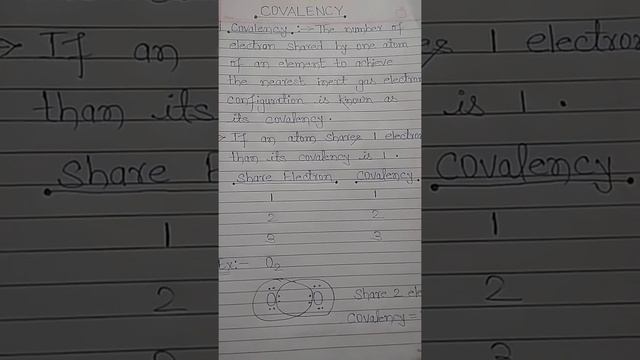 COVALENCY
Covalency :-> The number of
electron shared by one atom
of an element to achieve
the nearest inert gas electron
configuration is known as
its covalency.
If an atom shares 1 electron
than its covalency is 1.
Share Electron Covalency
1 1
2 2
3 3
Ex:- O2
O O Share 2 ele
Covalency =